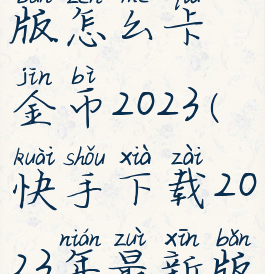 bǎn zěn me qiǎ
版怎么卡
jīn bì
金币2023(
kuài shǒu xià zài
快手下载20
nián zuì xīn bǎn
23年最新版